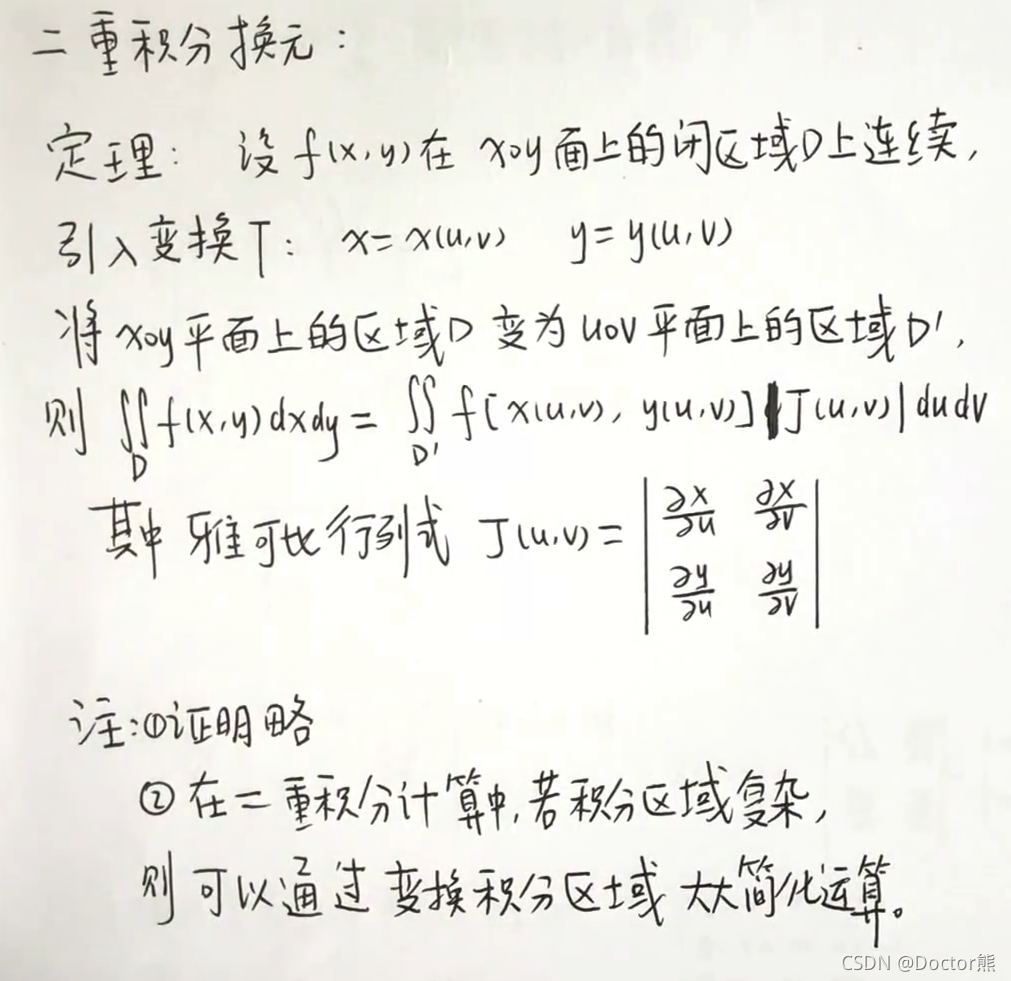 二重积分换元：
定理： 设 f(x,y) 在 xoy 面上的闭区域D上连续，
引入变换T： x=x(u,v) y=y(u,v)
将 xoy 平面上的区域D 变为 uov 平面上的区域D'，
则 ∬_D f(x,y)dxdy = ∬_D' f[x(u,v), y(u,v)] |J(u,v)| dudv
其中 雅可比行列式 J(u,v) = | ∂x/∂u ∂x/∂v |
| ∂y/∂u ∂y/∂v |
注:①证明略
②在二重积分计算中,若积分区域复杂,
则可以通过变换积分区域 大大简化运算。
CSDN @Doctor熊